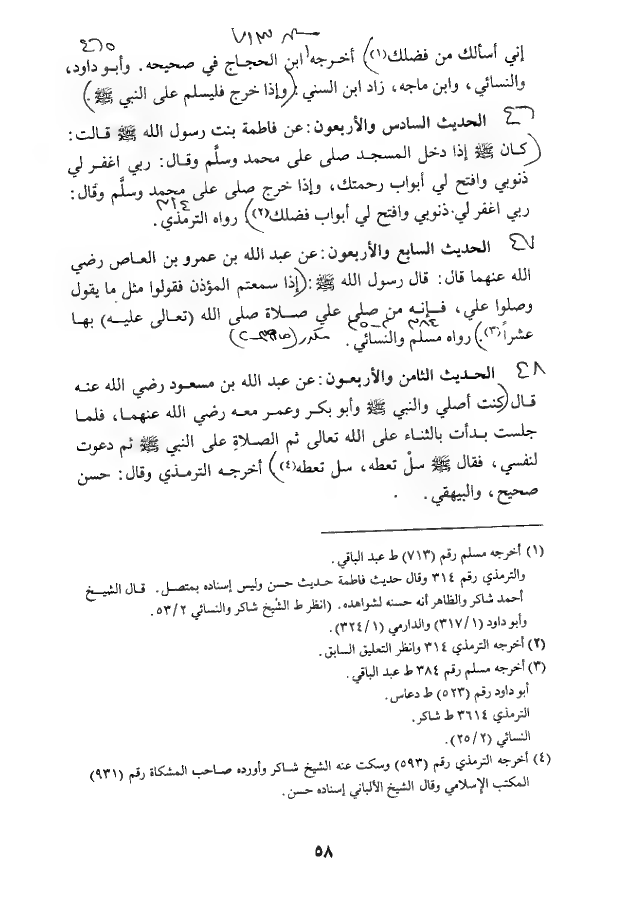 م ٧١٣ ٤٦٥
إني أسألك من فضلك(١)) أخرجه ابن الحجاج في صحيحه. وأبو داود،
والنسائي، وابن ماجه، زاد ابن السني: (وإذا خرج فليسلم على النبي ﷺ).
٤٦ الحديث السادس والأربعون: عن فاطمة بنت رسول الله ﷺ قالت:
(كان ﷺ إذا دخل المسجد صلى على محمد وسلَّم وقال: ربي اغفر لي
ذنوبي وافتح لي أبواب رحمتك، وإذا خرج صلى على محمد وسلَّم وقال:
ربي اغفر لي ذنوبي وافتح لي أبواب فضلك(٢)) رواه الترمذي. ٣١٤
٤٧ الحديث السابع والأربعون: عن عبد الله بن عمرو بن العاص رضي
الله عنهما قال: قال رسول الله ﷺ: (إذا سمعتم المؤذن فقولوا مثل ما يقول
وصلوا علي، فإنه من صلى علي صلاة صلى الله (تعالى عليه) بها
عشراً(٣).) رواه مسلم والنسائي. ٣٨٤ مكرر
٤٨ الحديث الثامن والأربعون: عن عبد الله بن مسعود رضي الله عنه
قال (كنت أصلي والنبي ﷺ وأبو بكر وعمر معه رضي الله عنهما، فلما
جلست بدأت بالثناء على الله تعالى ثم الصلاةِ على النبي ﷺ ثم دعوت
لنفسي، فقال ﷺ سلْ تعطه، سل تعطه(٤)) أخرجه الترمذي وقال: حسن
صحيح، والبيهقي.
(١) أخرجه مسلم رقم (٧١٣) ط عبد الباقي.
والترمذي رقم ٣١٤ وقال حديث فاطمة حديث حسن وليس إسناده بمتصل. قال الشيخ
أحمد شاكر والظاهر أنه حسنه لشواهده. (انظر ط الشيخ شاكر والنسائي ٥٣/٢.
وأبو داود (٣١٧/١) والدارمي (٣٢٤/١).
(٢) أخرجه الترمذي ٣١٤ وانظر التعليق السابق.
(٣) أخرجه مسلم رقم ٣٨٤ ط عبد الباقي.
أبو داود رقم (٥٢٣) ط دعاس.
الترمذي ٣٦١٤ ط شاكر.
النسائي (٢٥/٢).
(٤) أخرجه الترمذي رقم (٥٩٣) وسكت عنه الشيخ شاكر وأورده صاحب المشكاة رقم (٩٣١)
المكتب الإسلامي وقال الشيخ الألباني إسناده حسن.
٥٨